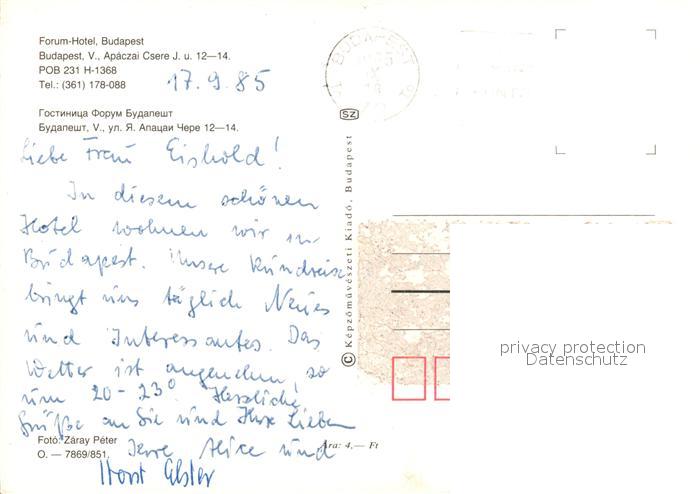 Forum-Hotel, Budapest
Budapest, V., Apáczai Csere J. u. 12—14.
POB 231 H-1368
Tel.: (361) 178-088
17.9.85
Гостиница Форум Будапешт
Будапешт, V., ул. Я. Апацаи Чере 12—14.
Liebe Frau Eishold!
In diesem schönen
Hotel wohnen wir in
Budapest. Unsere Rundreise
bringt uns täglich Neues
und Interessantes. Das
Wetter ist angenehm, so
um 20-23° Herzliche
Grüße an Sie und Ihre Lieben
Ihre Alice und
Horst Elster
Fotó: Záray Péter
O. — 7869/851.
Ára: 4,— Ft
BUDAPEST
SZ
© Képzőművészeti Kiadó, Budapest
privacy protection
Datenschutz